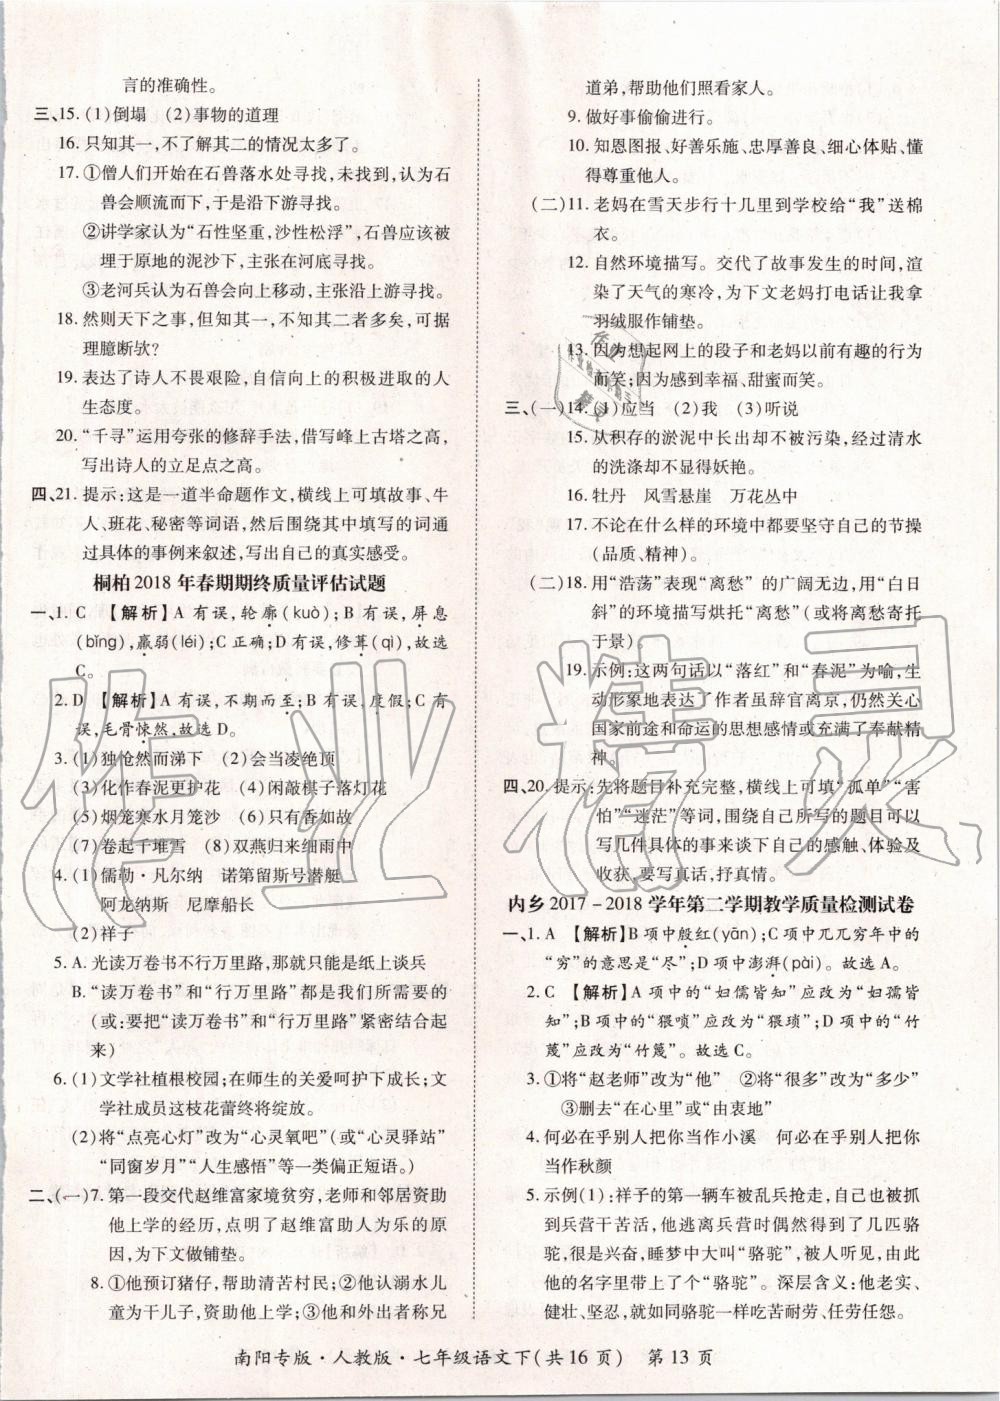 言的准确性。
三、15. (1)倒塌　(2)事物的道理
16. 只知其一,不了解其二的情况太多了。
17. ①僧人们开始在石兽落水处寻找,未找到,认为石
兽会顺流而下,于是沿下游寻找。
②讲学家认为“石性坚重,沙性松浮”,石兽应该被
埋于原地的泥沙下,主张在河底寻找。
③老河兵认为石兽会向上移动,主张沿上游寻找。
18. 然则天下之事,但知其一,不知其二者多矣,可据
理臆断欤?
19. 表达了诗人不畏艰险,自信向上的积极进取的人
生态度。
20. “千寻”运用夸张的修辞手法,借写峰上古塔之高,
写出诗人的立足点之高。
四、21. 提示:这是一道半命题作文,横线上可填故事、牛
人、班花、秘密等词语,然后围绕其中填写的词通
过具体的事例来叙述,写出自己的真实感受。
桐柏 2018 年春期期终质量评估试题
一、1. C　【解析】A 有误,轮廓(kuò);B 有误,屏息
(bǐng),羸弱(léi);C 正确;D 有误,修葺(qì),故选
C。
2. D　【解析】A 有误,不期而至;B 有误,度假;C 有
误,毛骨悚然,故选 D。
3. (1)独怆然而涕下　(2)会当凌绝顶
(3)化作春泥更护花　(4)闲敲棋子落灯花
(5)烟笼寒水月笼沙　(6)只有香如故
(7)卷起千堆雪　(8)双燕归来细雨中
4. (1)儒勒·凡尔纳　诺第留斯号潜艇
阿龙纳斯　尼摩船长
(2)祥子
5. A. 光读万卷书不行万里路,那就只能是纸上谈兵
B. “读万卷书”和“行万里路”都是我们所需要的
(或:要把“读万卷书”和“行万里路”紧密结合起
来)
6. (1)文学社植根校园;在师生的关爱呵护下成长;文
学社成员这枝花蕾终将绽放。
(2)将“点亮心灯”改为“心灵氧吧”(或“心灵驿站”
“同窗岁月”“人生感悟”等一类偏正短语。)
二、(一)7. 第一段交代赵维富家境贫穷,老师和邻居资助
他上学的经历,点明了赵维富助人为乐的原
因,为下文做铺垫。
8. ①他预订猪仔,帮助清苦村民;②他认溺水儿
童为干儿子,资助他上学;③他和外出者称兄
道弟,帮助他们照看家人。
9. 做好事偷偷进行。
10. 知恩图报、好善乐施、忠厚善良、细心体贴、懂
得尊重他人。
(二)11. 老妈在雪天步行十几里到学校给“我”送棉
衣。
12. 自然环境描写。交代了故事发生的时间,渲
染了天气的寒冷,为下文老妈打电话让我拿
羽绒服作铺垫。
13. 因为想起网上的段子和老妈以前有趣的行为
而笑;因为感到幸福、甜蜜而笑。
三、(一)14. (1)应当　(2)我　(3)听说
15. 从积存的淤泥中长出却不被污染,经过清水
的洗涤却不显得妖艳。
16. 牡丹　风雪悬崖　万花丛中
17. 不论在什么样的环境中都要坚守自己的节操
(品质、精神)。
(二)18. 用“浩荡”表现“离愁”的广阔无边,用“白日
斜”的环境描写烘托“离愁”(或将离愁寄托
于景)。
19. 示例:这两句话以“落红”和“春泥”为喻,生
动形象地表达了作者虽辞官离京,仍然关心
国家前途和命运的思想感情或充满了奉献精
神。
四、20. 提示:先将题目补充完整,横线上可填“孤单”“害
怕”“迷茫”等词,围绕自己所写的题目可以
写几件具体的事来谈下自己的感触、体验及
收获,要写真情,抒真情。
内乡 2017－2018 学年第二学期教学质量检测试卷
一、1. A　【解析】B 项中殷红(yān);C 项中兀兀穷年中的
“穷”的意思是“尽”;D 项中澎湃(pài)。故选 A。
2. C　【解析】A 项中的“妇儒皆知”应改为“妇孺皆
知”;B 项中的“猥唢”应改为“猥琐”;D 项中的“竹
蔑”应改为“竹篾”。故选 C。
3. ①将“赵老师”改为“他”　②将“很多”改为“多少”
③删去“在心里”或“由衷地”
4. 何必在乎别人把你当作小溪　何必在乎别人把你
当作秋颜
5. 示例(1):祥子的第一辆车被乱兵抢走,自己也被抓
到兵营干苦活,他逃离兵营时偶然得到了几匹骆
驼,很是兴奋,睡梦中大叫“骆驼”,被人听见,由此
他的名字里带上了个“骆驼”。深层含义:他老实、
健壮、坚忍,就如同骆驼一样吃苦耐劳、任劳任怨。
南阳专版·人教版·七年级语文下(共 16 页)　第 13 页
作业精灵